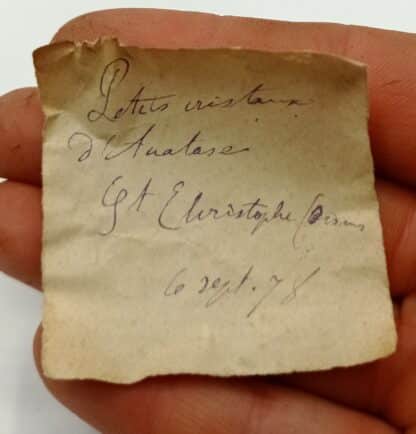 Petits cristaux
d'Anatase
St Christophe (Oisans
6 sept. 78